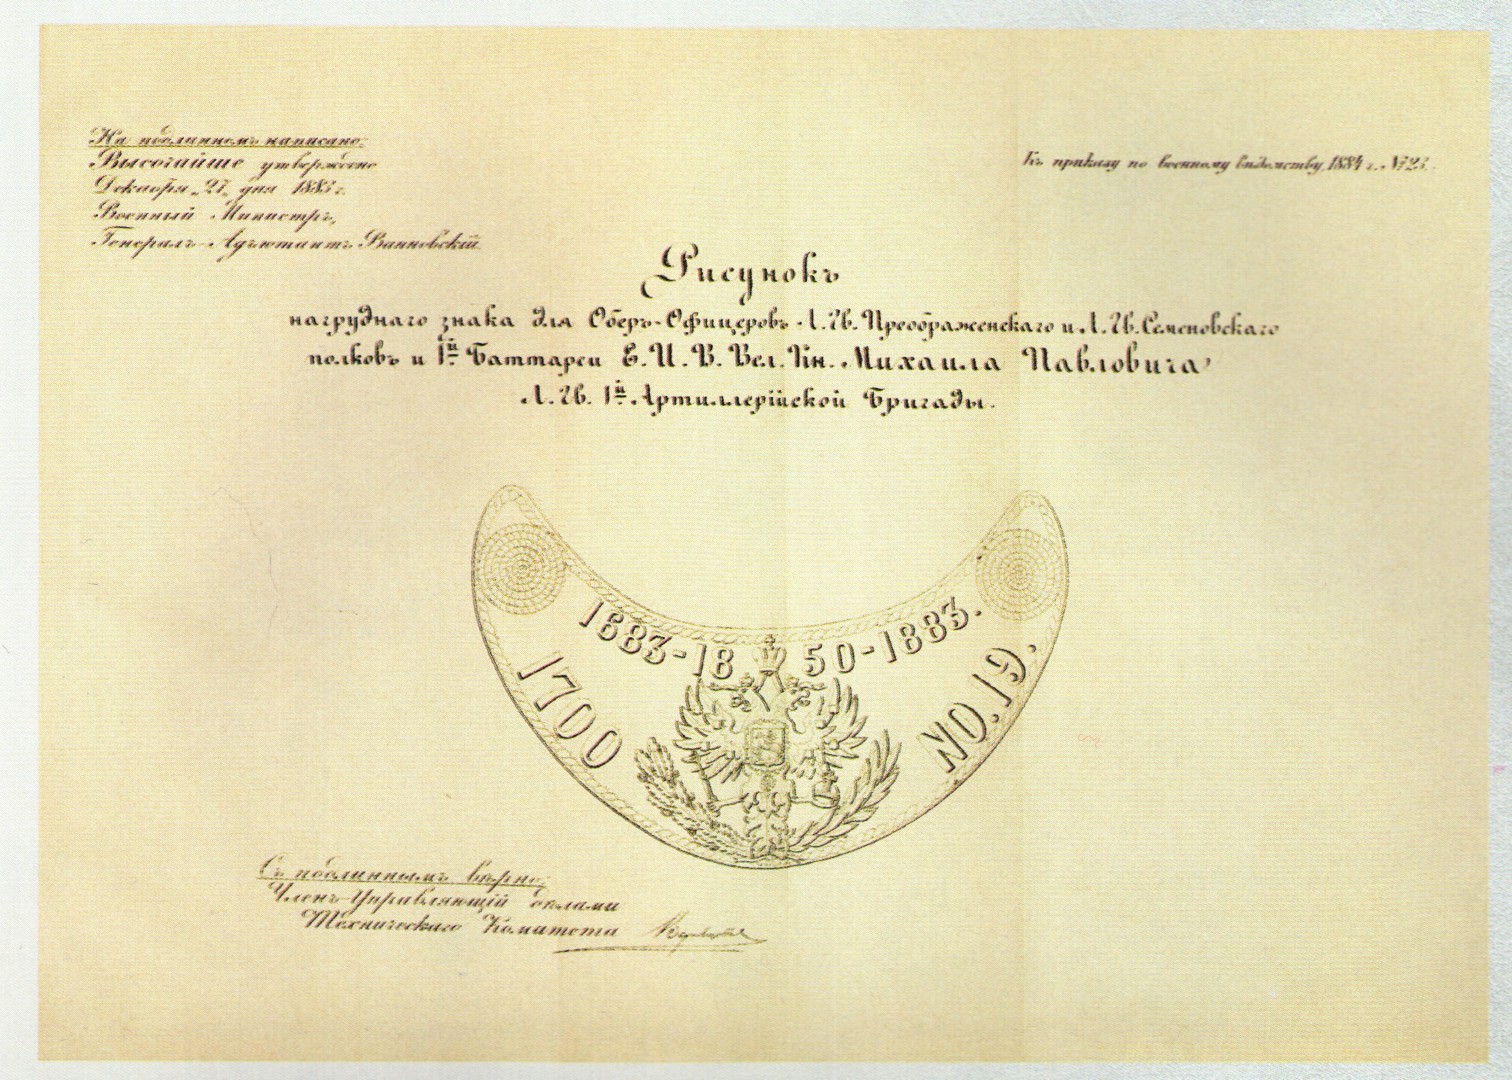 На подлинномъ написано:
Высочайше утверждено
Декабря „27„ дня 1883 г.
Военный Министръ,
Генералъ-Адъютантъ Ванновскій
Къ приказу по военному вѣдомству, 1884 г. №23.
Рисунокъ
нагруднаго знака для Оберъ-Офицеровъ Л. Гв. Преображенскаго и Л. Гв. Семеновскаго
полковъ и 1й Баттареи Е. И. В. Вел. Кн. Михаила Павловича
Л. Гв. 1й Артиллерійской Бригады.
1683-18 50-1883.
1700 NO. 19.
Съ подлиннымъ вѣрно:
Членъ-Управляющій дѣлами
Техническаго Комитета